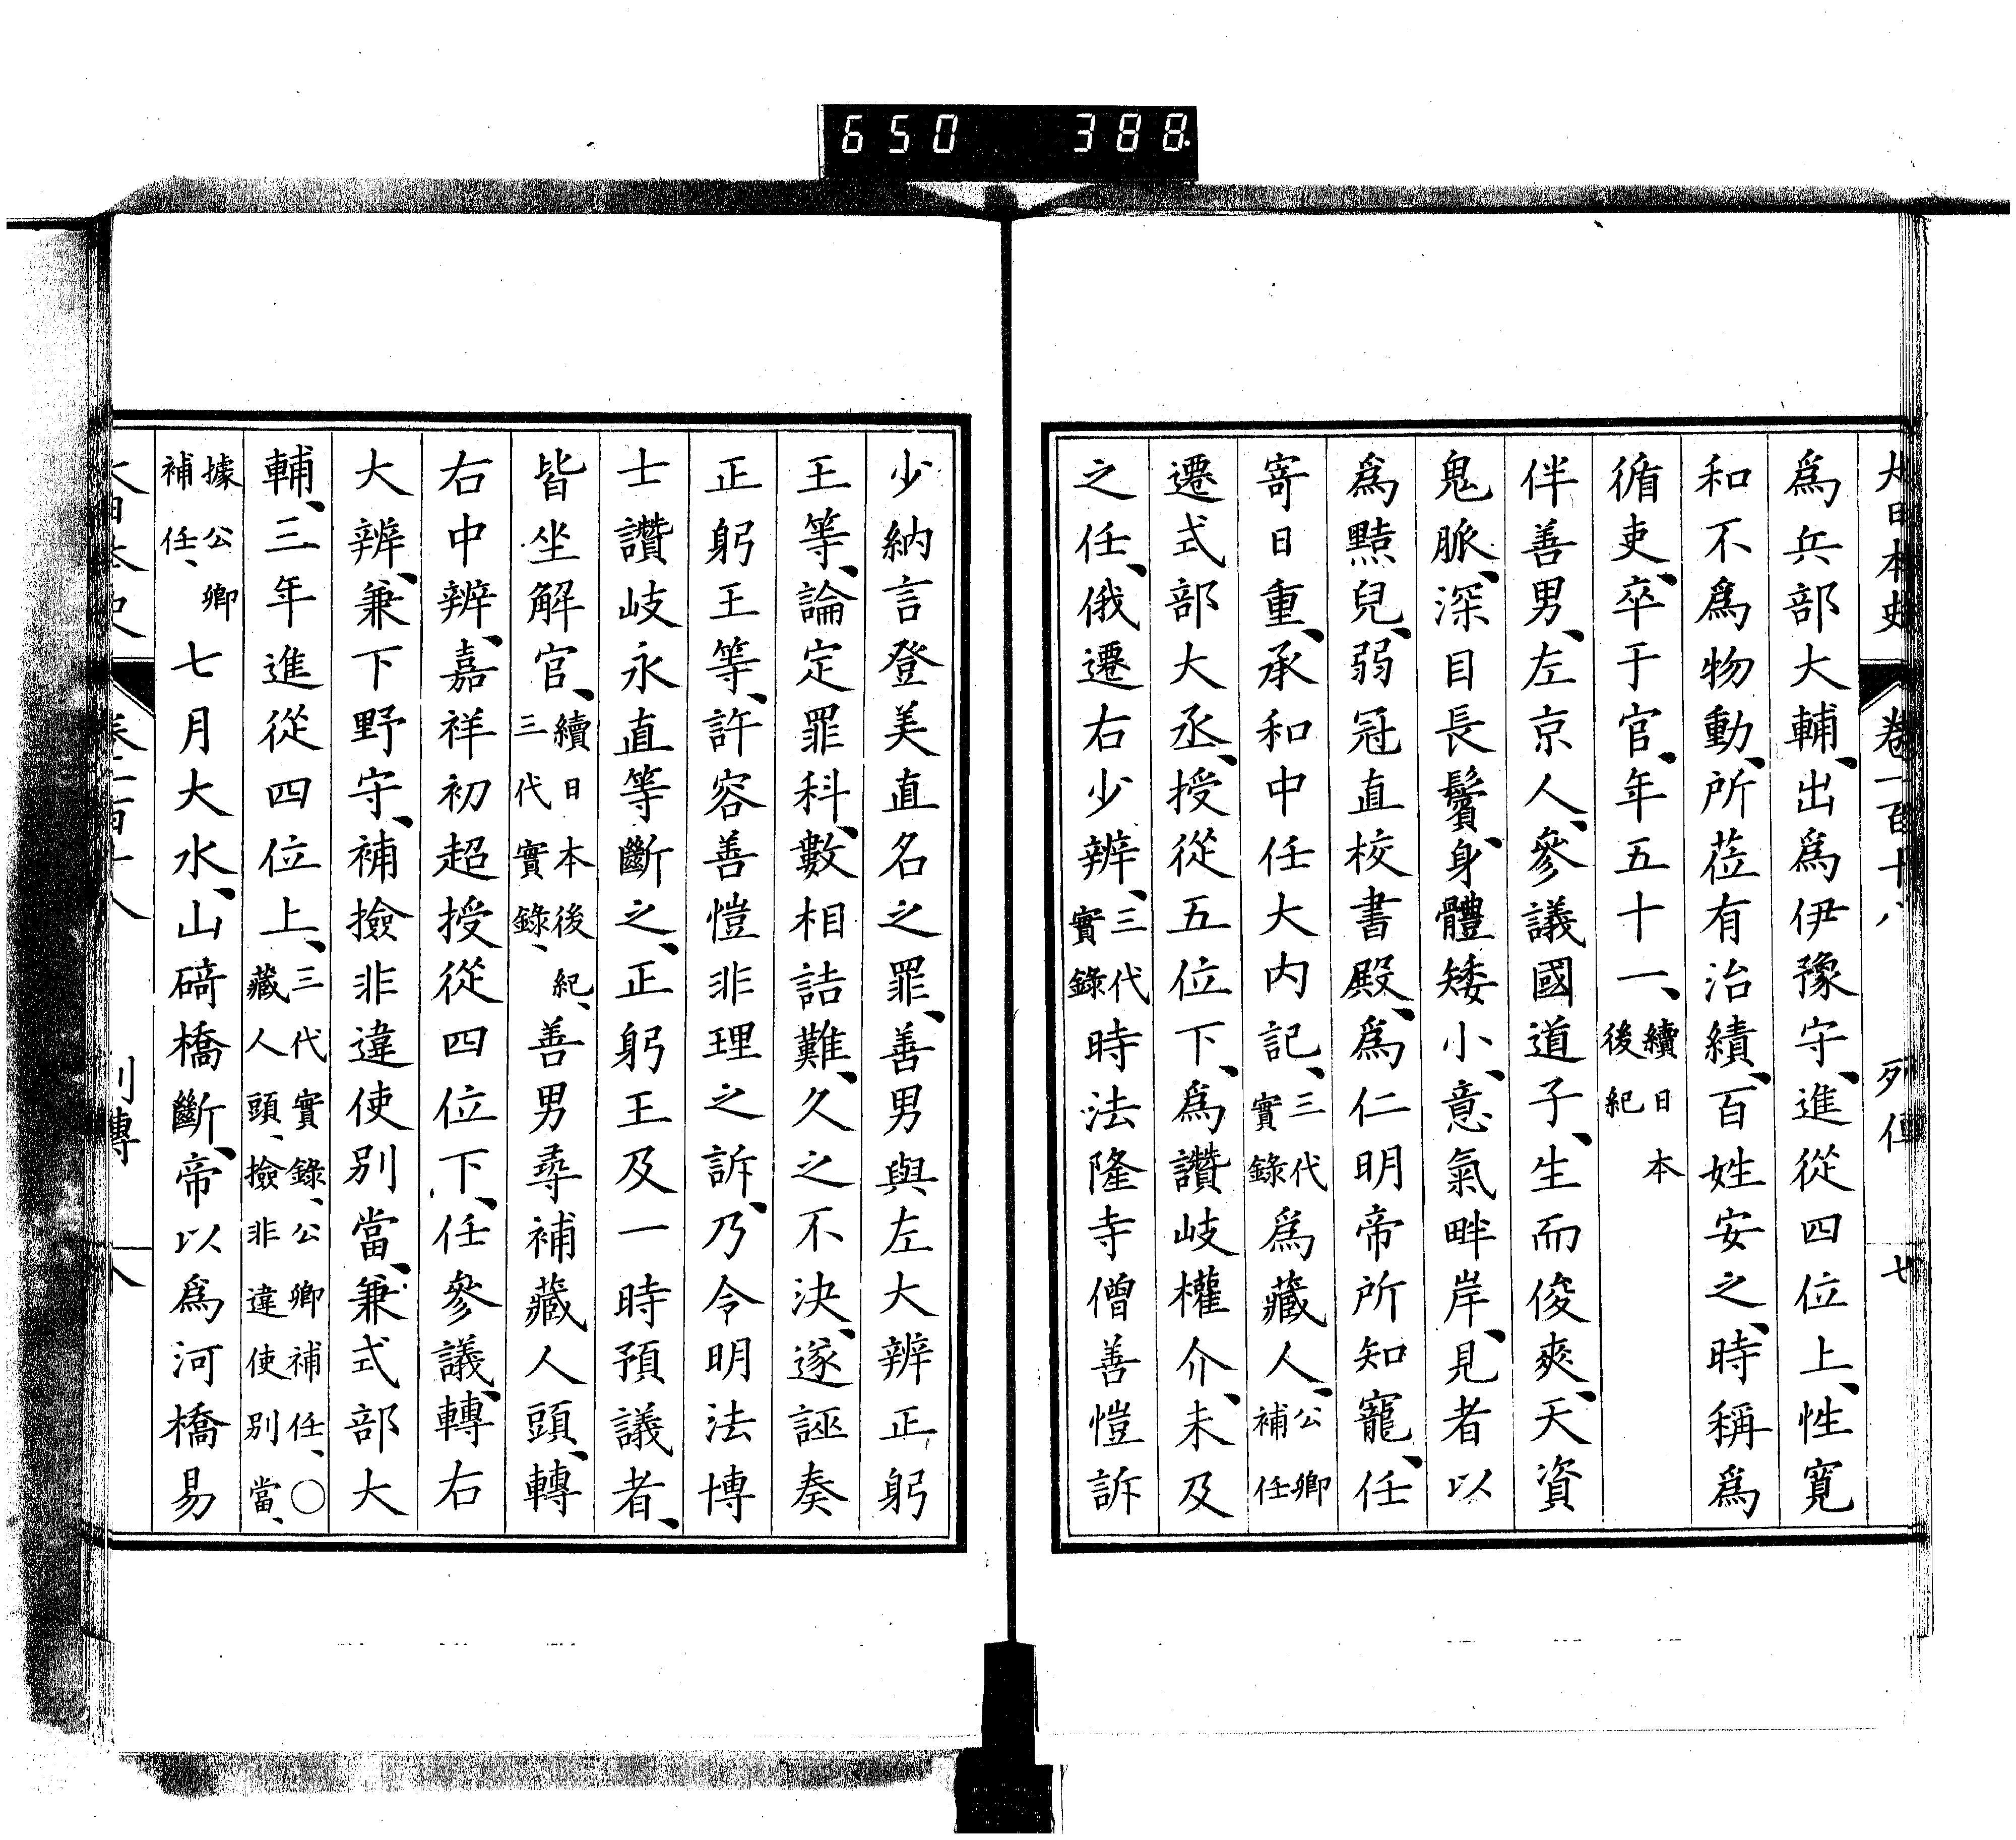 650 388
大日本史 卷一百十八 列傳 七
爲兵部大輔、出爲伊豫守、進從四位上、性寬
和不爲物動、所莅有治績、百姓安之、時稱爲
循吏、卒于官、年五十一、續日本後紀
伴善男、左京人、參議國道子、生而俊爽、天資
鬼脈、深目長鬢、身體矮小、意氣畔岸、見者以
爲黠兒、弱冠直校書殿、爲仁明帝所知寵、任
寄日重、承和中任大内記、三代實錄爲藏人、公卿補任
遷式部大丞、授從五位下、爲讚岐權介、未及
之任、俄遷右少辨、三代實錄時法隆寺僧善愷訴
少納言登美直名之罪、善男與左大辨正躬
王等、論定罪科、數相詰難、久之不決、遂誣奏
正躬王等、許容善愷非理之訴、乃令明法博
士讚岐永直等斷之、正躬王及一時預議者、
皆坐解官、續日本後紀、三代實錄、善男尋補藏人頭、轉
右中辨、嘉祥初超授從四位下、任參議、轉右
大辨、兼下野守、補撿非違使別當、兼式部大
輔、三年進從四位上、三代實錄、公卿補任、○藏人頭、撿非違使別當、
據公卿補任、七月大水、山碕橋斷、帝以爲河橋易
大日本史 卷一百十八 列傳 八